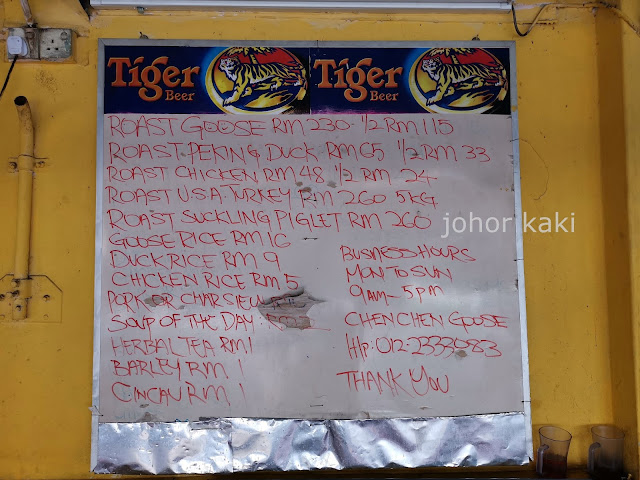 Tiger Beer
Tiger Beer
ROAST GOOSE RM 230- 1/2 RM 115
ROAST. PEKING DUCK RM 65 1/2 RM 33
ROAST CHICKEN RM 48 1/2 RM 24
ROAST U.S.A. TURKEY RM 260 5KG
ROAST SUCKLING PIGLET RM 260
GOOSE RICE RM 16
DUCK RICE RM 9
CHICKEN RICE RM 5
PORK OR CHARSIEW
SOUP OF THE DAY
HERBAL TEA RM 1
BARLEY RM 1
CINCAU RM 1
BUSINESS HOURS
MON TO SUN
9AM - 5PM
CHEN CHEN GOOSE
H/p: 012-2333983
THANK YOU
johor kaki